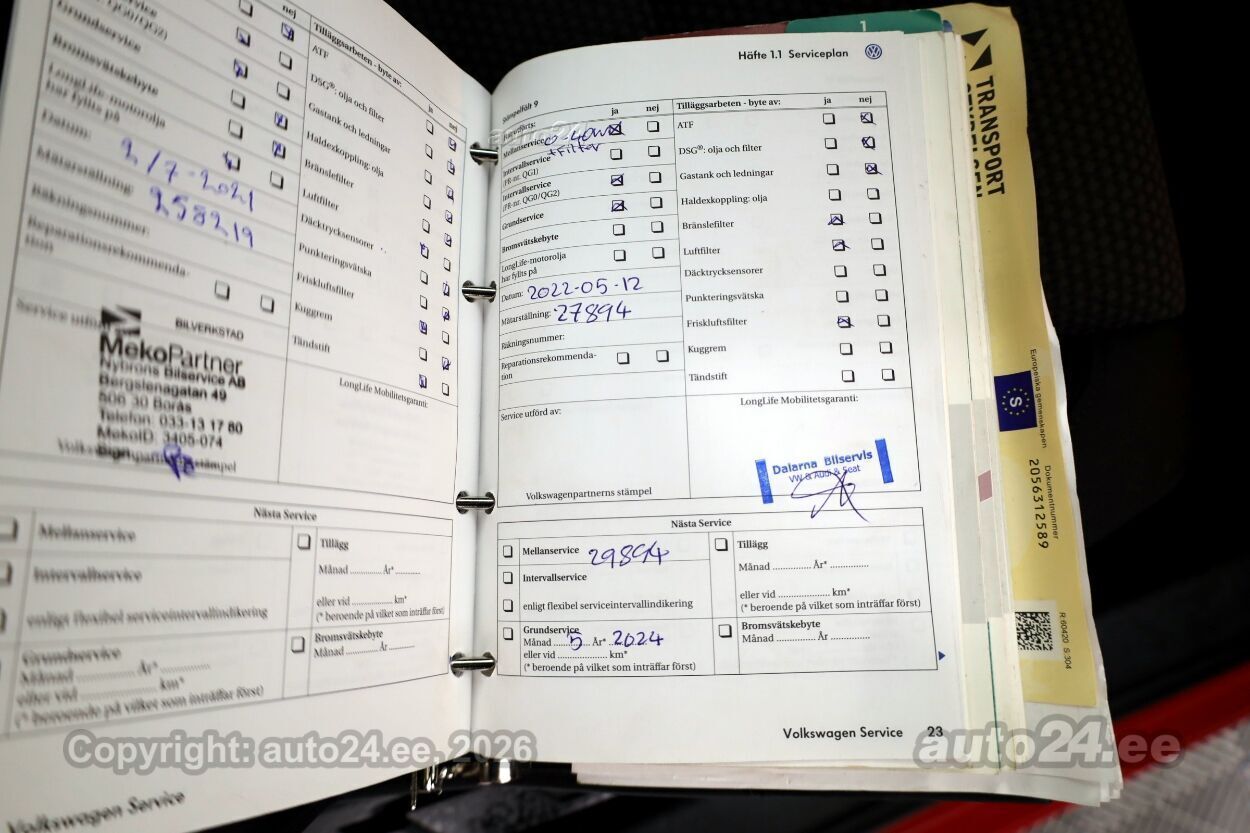 QG0/QG2)
Grundservice
Bromsvätskebyte
LongLife-motorolja
har fyllts på
Datum: 2/7-2021
Mätarställning: 258219
Räkningsnummer:
Reparationsrekommenda-
tion
nej
Tilläggsarbeten - byte av:
ja
nej
ATF
DSG®: olja och filter
Gastank och ledningar
Haldexkoppling: olja
Bränslefilter
Luftfilter
Däcktrycksensorer
Punkteringsvätska
Friskluftsfilter
Kuggrem
Tändstift
LongLife Mobilitetsgaranti:
Service utförd
BILVERKSTAD
MekoPartner
Nybrons Bilservice AB
Bergslenagatan 49
506 30 Borås
Telefon: 033-13 17 80
MekoID: 3405-074
Nästa Service
Mellanservice
Intervallservice
enligt flexibel serviceintervallindikering
Grundservice
Månad ............ År* ............
eller vid .................... km*
(* beroende på vilket som inträffar först)
Tillägg
Månad ............ År* ............
eller vid .................... km*
(* beroende på vilket som inträffar först)
Bromsvätskebyte
Månad ............ År ............
Volkswagen Service
Häfte 1.1 Serviceplan
Stämpelfält 9
ja
nej
Tilläggsarbeten - byte av:
ja
nej
Mellanservice
+Filter
Intervallservice
(PR-nr. QG1)
Intervallservice
(PR-nr. QG0/QG2)
Grundservice
Bromsvätskebyte
LongLife-motorolja
har fyllts på
Datum: 2022-05-12
Mätarställning: 27894
Räkningsnummer:
Reparationsrekommenda-
tion
ATF
DSG®: olja och filter
Gastank och ledningar
Haldexkoppling: olja
Bränslefilter
Luftfilter
Däcktrycksensorer
Punkteringsvätska
Friskluftsfilter
Kuggrem
Tändstift
Service utförd av:
LongLife Mobilitetsgaranti:
Dalarna Bilservis
VW & Audi & Seat
Volkswagenpartners stämpel
Nästa Service
Mellanservice 29894
Intervallservice
enligt flexibel serviceintervallindikering
Grundservice
Månad ..... 5 År* 2024
eller vid .................... km*
(* beroende på vilket som inträffar först)
Tillägg
Månad ............ År* ............
eller vid .................... km*
(* beroende på vilket som inträffar först)
Bromsvätskebyte
Månad ............ År ............
Volkswagen Service 23
1
TRANSPORT
Europeiska gemenskapen
S
Dokumentnummer
2056312589
R 60420 S 304
Copyright: auto24.ee, 2026
auto24.ee